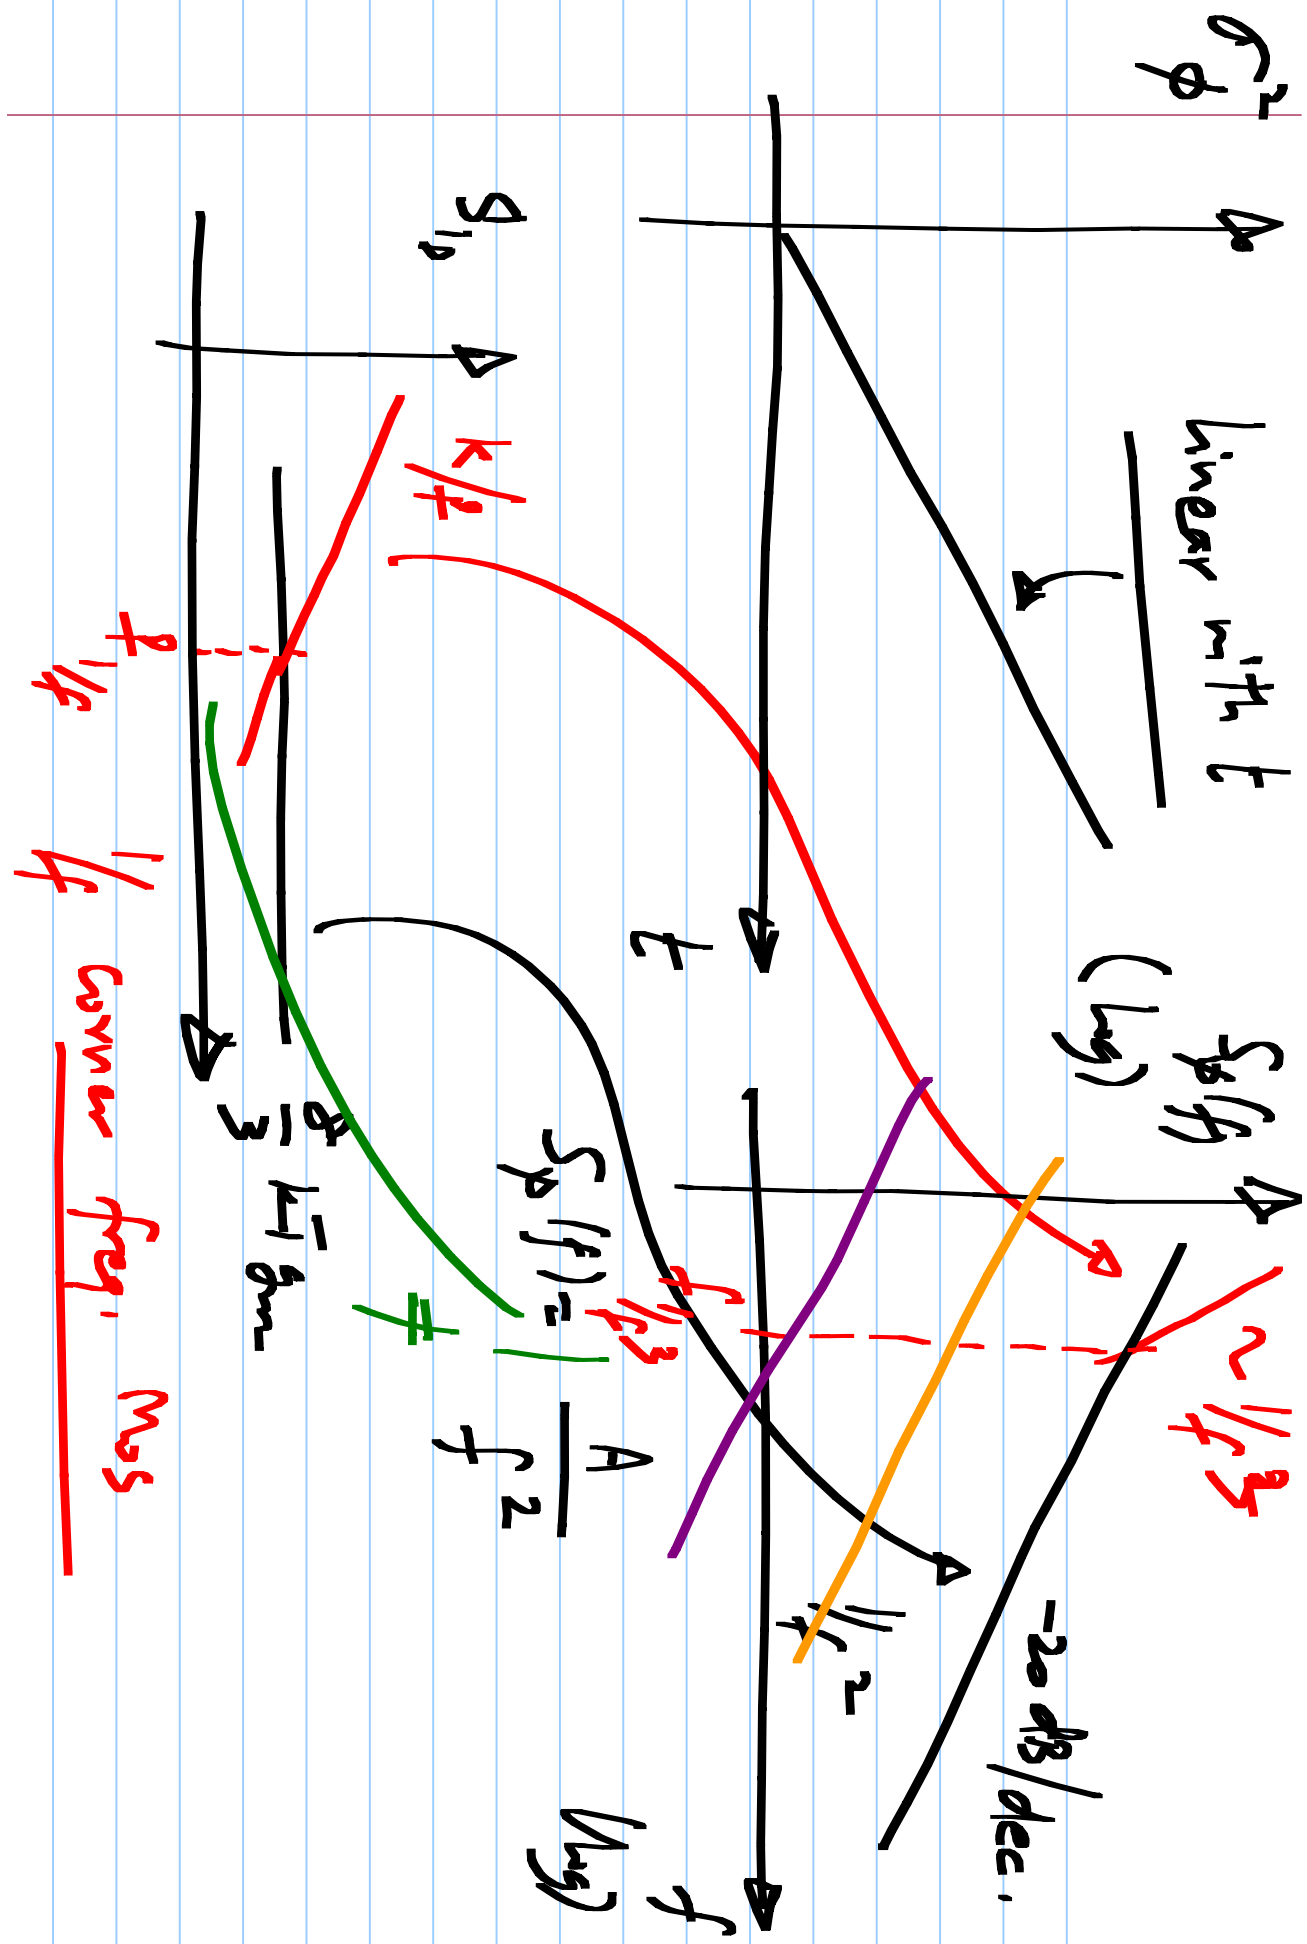 σ²ϕ
linear with t
t
Sϕ(f)
(log)
~ 1/f³
-20 dB/dec.
1/f²
f
(log)
f1/f³
Sϕ(f) = A/f²
SiD
K/f
f1/f
1/f corner freq, MOS